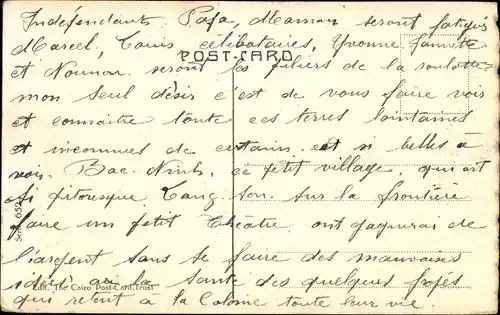 Indéfendants. Papa, Maman seront fatigués
Marcel, Louis célibataires, Yvonne fannette
POST-CARD
et Nounou seront les filiers de la roulotte?
mon seul désir c'est de vous faire voir
et connaitre toute ces terres lointaines
et inconnues de certains et si belles à
voir. Bac-Ninh, ce petit village, qui est
si pitoresque Lang-son. sur la frontière
faire un petit théatre, ont gagnerai de
l'argent sans se faire des mauvaises
idées, ou la santé des quelques fo és
Edit. The Cairo Post-Card Trust
qui restent à la Colonie toute leur vie.
Serie 652